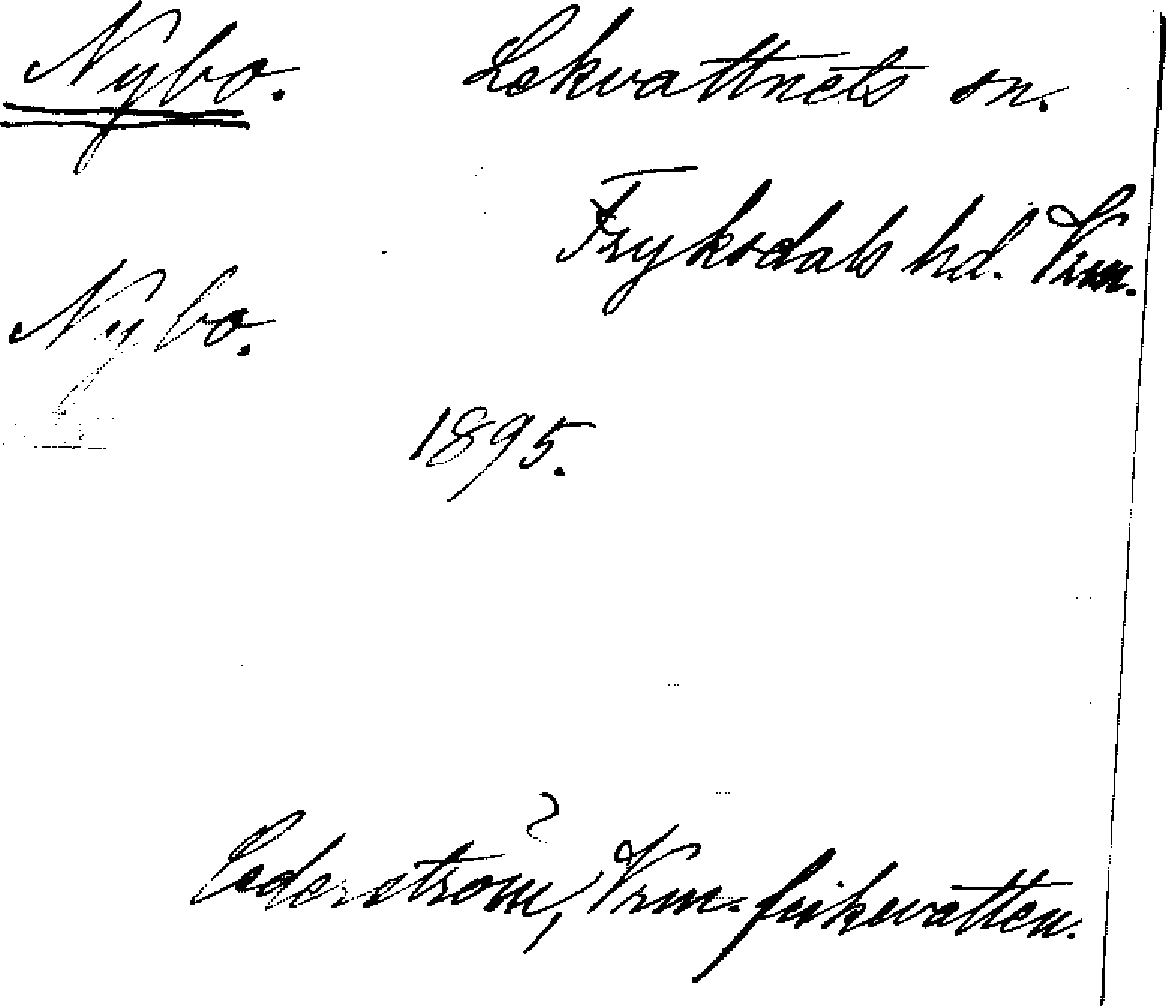 Nybo. Lekvattnets sn.
Fryksdals hd. Vrm.
Nybo.
1895.
Cederström, Vrm. fiskevatten.